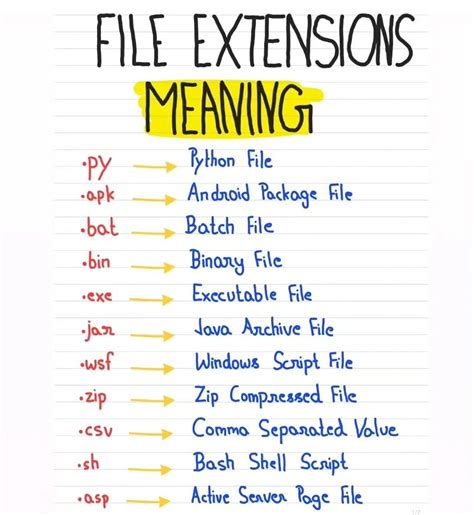 FILE EXTENSIONS
MEANING
.py → Python File
.apk → Android Package File
.bat → Batch File
.bin → Binary File
.exe → Executable File
.jar → Java Archive File
.wsf → Windows Script File
.zip → Zip Compressed File
.csv → Comma Separated Value
.sh → Bash Shell Script
.asp → Active Server Page File